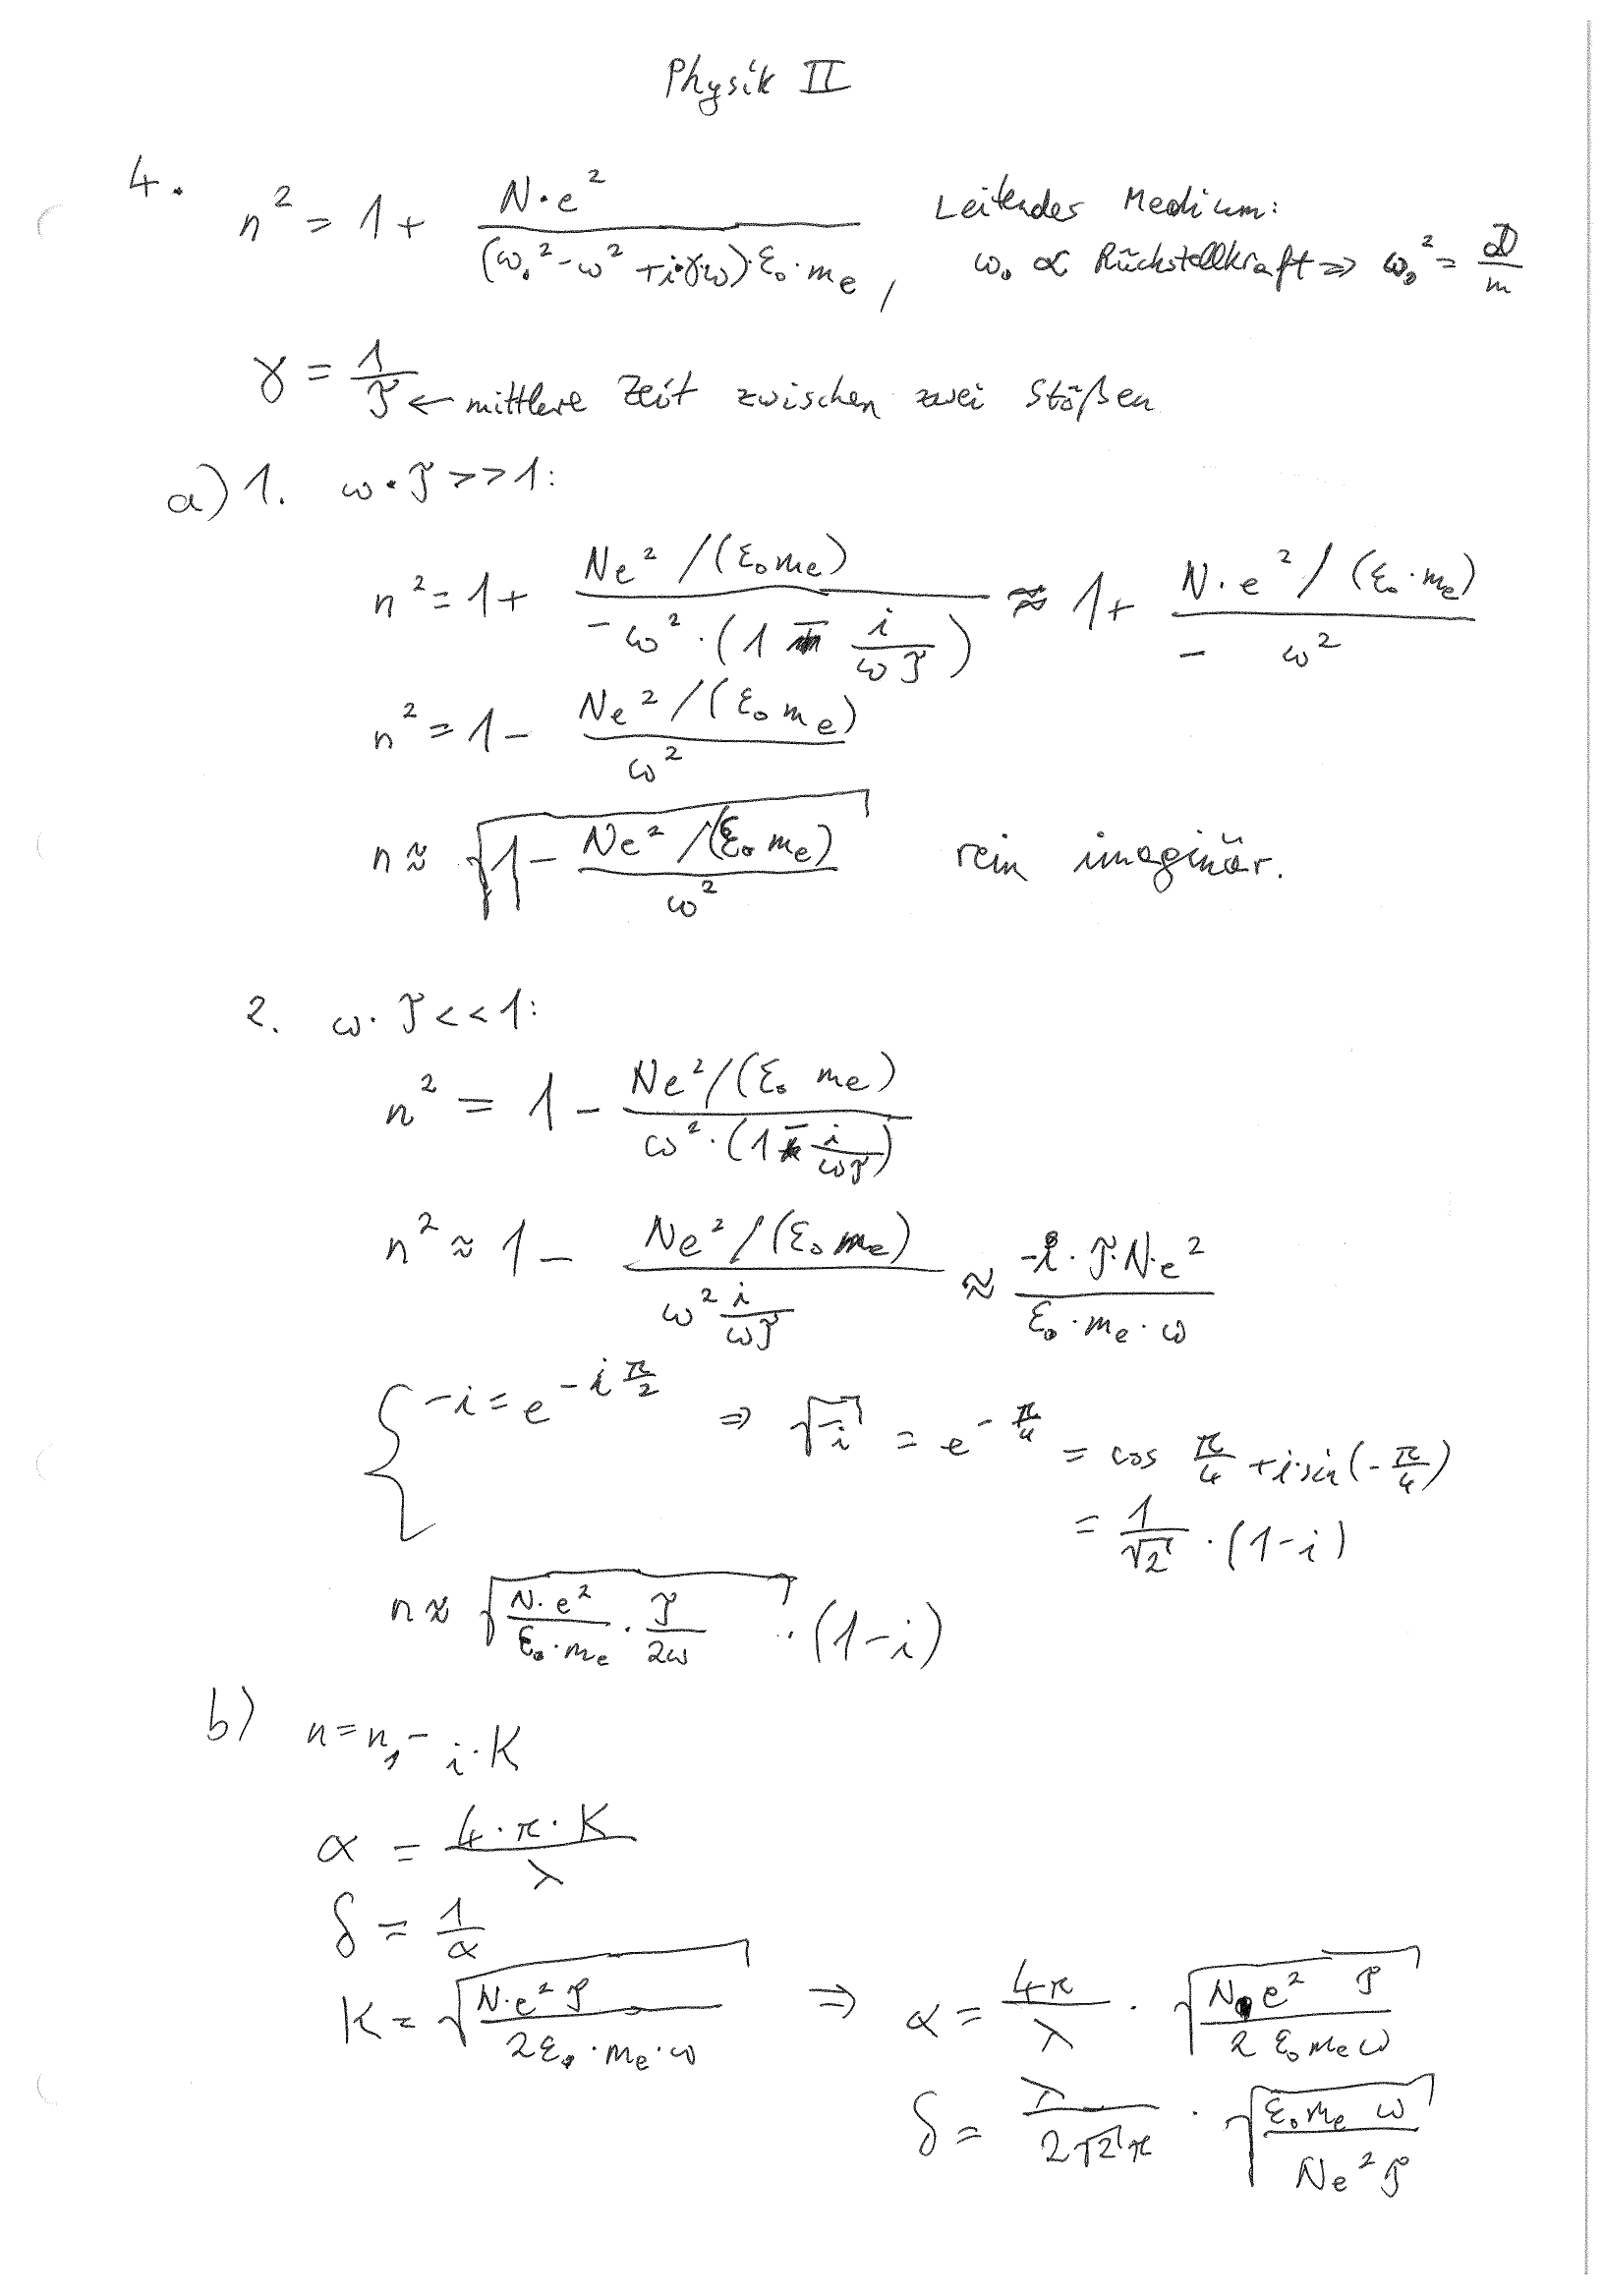 Physik II
4. n² = 1 + N·e² / ((ω₀² - ω² + i·γ·ω)·ε₀·mₑ) , Leitendes Medium:
ω₀ ∝ Rückstellkraft ⇒ ω₀² = D/m
γ = 1/τ ← mittlere Zeit zwischen zwei Stößen
a) 1. ω·τ >> 1:
n² = 1 + (Ne²/(ε₀mₑ)) / (-ω²·(1 - i/(ωτ))) ≈ 1 + (N·e²/(ε₀·mₑ)) / (-ω²)
n² = 1 - (Ne²/(ε₀mₑ)) / ω²
n ≈ √(1 - (Ne²/(ε₀mₑ)) / ω²) rein imaginär.
2. ω·τ << 1:
n² = 1 - (Ne²/(ε₀ mₑ)) / (ω²·(1 - i/(ωτ)))
n² ≈ 1 - (Ne²/(ε₀mₑ)) / (ω² i/(ωτ)) ≈ (-i·τ·N·e²) / (ε₀·mₑ·ω)
{ -i = e^(-i π/2) ⇒ √(-i) = e^(-π/4) = cos π/4 + i·sin(-π/4)
= 1/√2 · (1-i)
n ≈ √(N·e²/(ε₀·mₑ) · τ/(2ω)) · (1-i)
b) n = n₁ - i·K
α = 4·π·K / λ
δ = 1/α
K = √(N·e² τ / (2ε₀·mₑ·ω)) ⇒ α = 4π/λ · √(N e² τ / (2 ε₀ mₑ ω))
δ = λ/(2√2 π) · √(ε₀ mₑ ω / (Ne² τ))